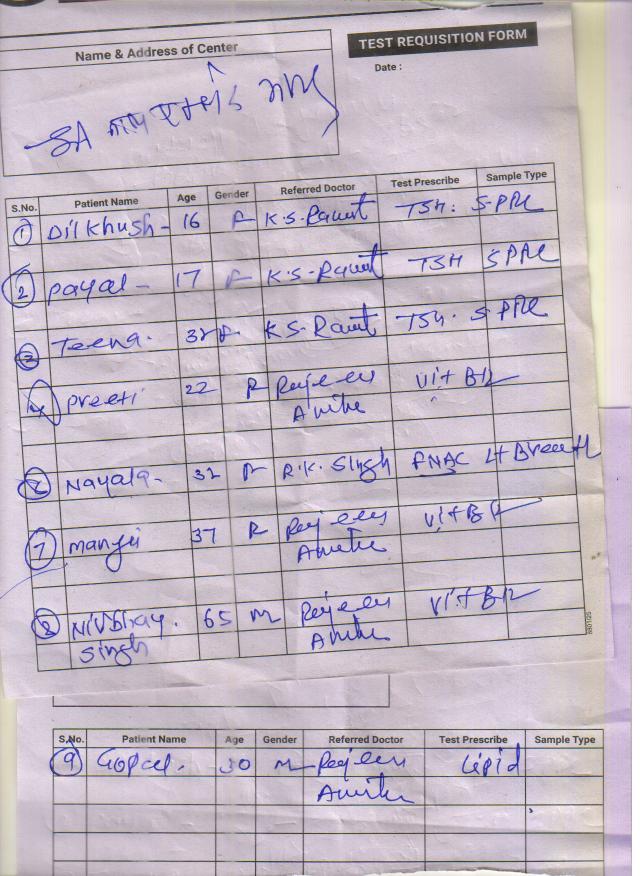 Name & Address of Center
TEST REQUISITION FORM
Date :
S.No. Patient Name Age Gender Referred Doctor Test Prescribe Sample Type
1 Dilkhush - 16 F K.S. Rawat TSH. S-PPL
2 Payal - 17 F K.S. Rawat TSH SPPL
3 Teena. 32 F K S. Rawat TSH. S PPL
4 Preeti 22 F Vit B12
Nayala - 32 F R.K. Singh FNAC Lt Breast
7 Manju 37 F Vit B12
8 Nirbhay. 65 M Vit B12
Singh
S.No. Patient Name Age Gender Referred Doctor Test Prescribe Sample Type
9 Gopal. 30 M Lipid